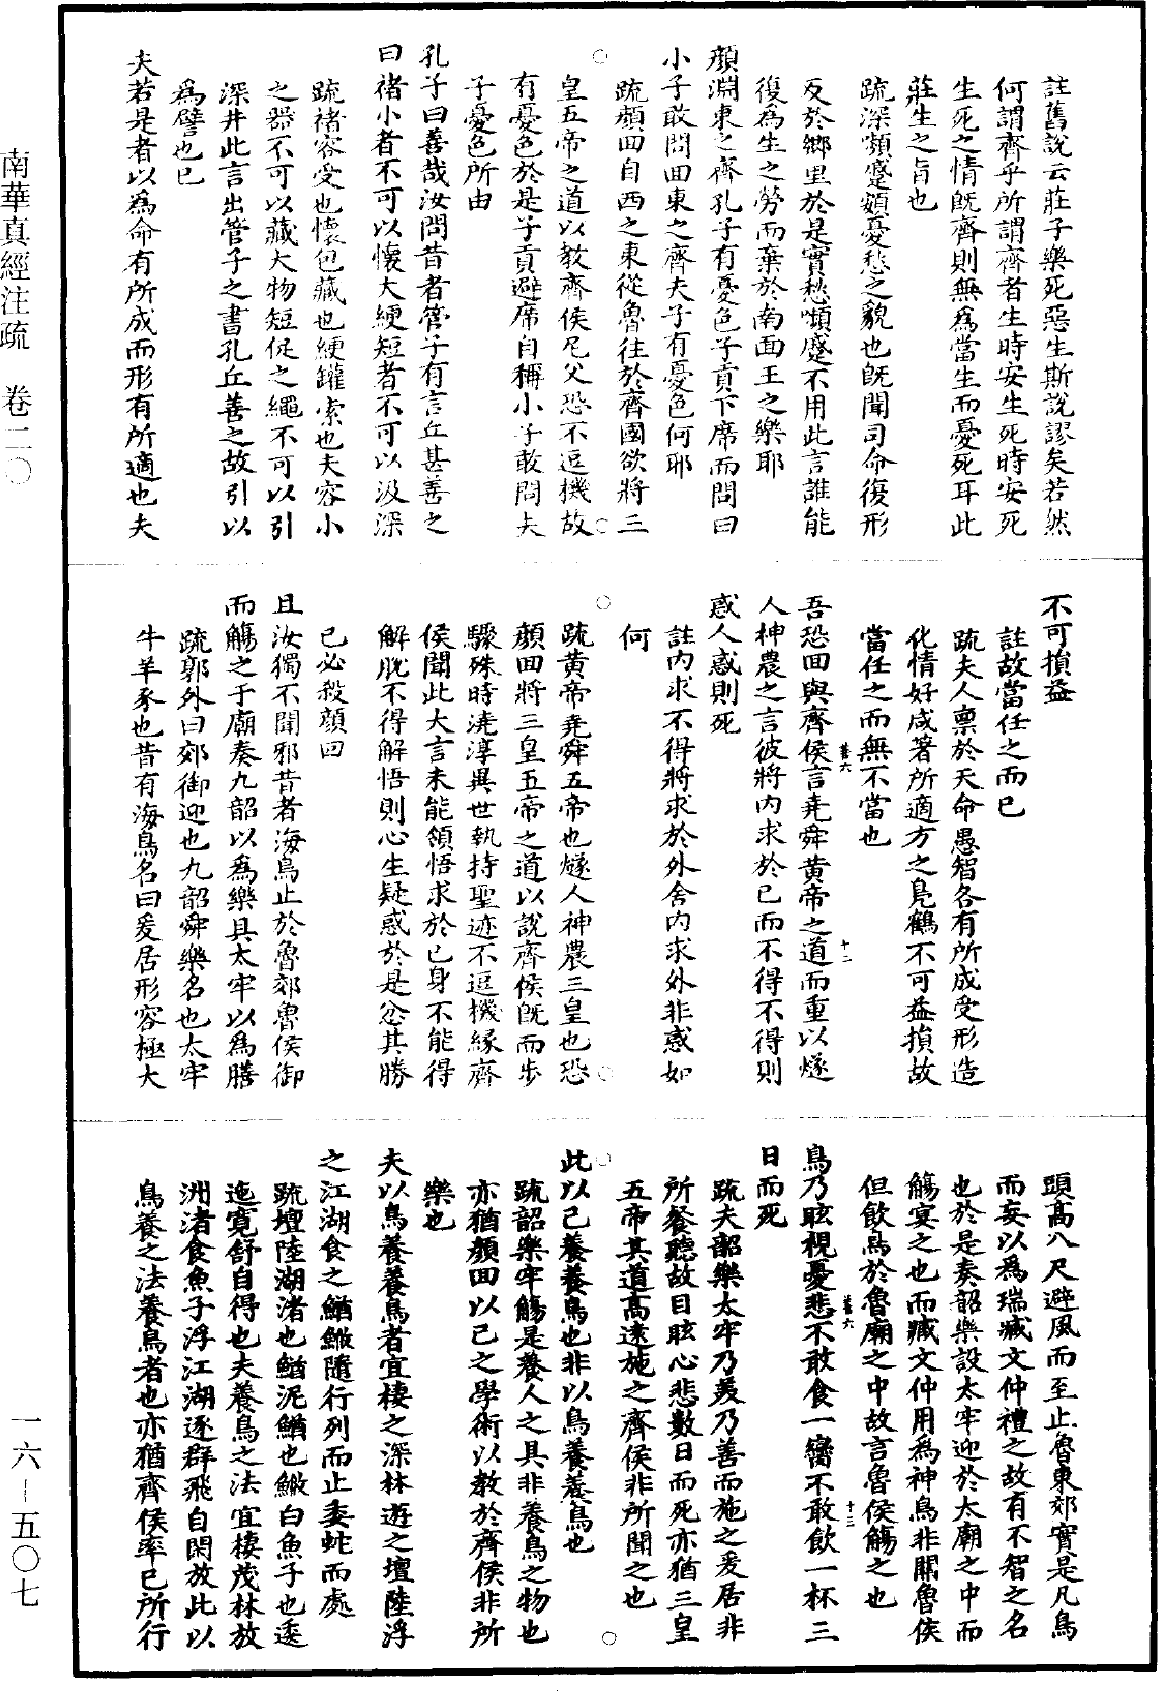 南華真經注疏　卷二〇
註舊說云莊子樂死惡生斯說謬矣若然
何謂齊乎所謂齊者生時安生死時安死
生死之情既齊則無為當生而憂死耳此
莊生之旨也
疏深矉蹙頞憂愁之貌也既聞司命復形
反於鄉里於是實愁嚬蹙不用此言誰能
復為生之勞而棄於南面王之樂耶
顏淵東之齊孔子有憂色子貢下席而問曰
小子敢問回東之齊夫子有憂色何耶
疏顏回自西之東從魯往於齊國欲將三
皇五帝之道以教齊侯尼父恐不逗機故
有憂色於是子貢避席自稱小子敢問夫
子憂色所由
孔子曰善哉汝問昔者管子有言丘甚善之
曰褚小者不可以懷大綆短者不可以汲深
疏褚容受也懷包藏也綆罐索也夫容小
之器不可以藏大物短促之繩不可以引
深井此言出管子之書孔丘善之故引以
為譬也已
夫若是者以為命有所成而形有所適也夫
不可損益
註故當任之而已
疏夫人禀於天命愚智各有所成受形造
化情好咸著所適方之鳧鶴不可益損故
當任之而無不當也
吾恐回與齊侯言堯舜黃帝之道而重以燧
人神農之言彼將內求於己而不得不得則
惑人惑則死
註內求不得將求於外舍內求外非惑如
何
疏黃帝堯舜五帝也燧人神農三皇也恐
顏回將三皇五帝之道以說齊侯既而步
驟殊時澆淳異世執持聖迹不逗機緣齊
侯聞此大言未能領悟求於己身不能得
解脫不得解悟則心生疑惑於是忿其勝
己必殺顏回
且汝獨不聞邪昔者海鳥止於魯郊魯侯御
而觴之于廟奏九韶以為樂具太牢以為膳
疏郭外曰郊御迎也九韶舜樂名也太牢
牛羊豕也昔有海鳥名曰爰居形容極大
頭高八尺避風而至止魯東郊實是凡鳥
而妄以為瑞臧文仲禮之故有不智之名
也於是奏韶樂設太牢迎於太廟之中而
觴宴之也而臧文仲用為神鳥非關魯侯
但飲鳥於魯廟之中故言魯侯觴之也
鳥乃眩視憂悲不敢食一臠不敢飲一杯三
日而死
疏夫韶樂太牢乃美乃善而施之爰居非
所餐聽故目眩心悲數日而死亦猶三皇
五帝其道高遠施之齊侯非所聞之也
此以己養養鳥也非以鳥養養鳥也
疏韶樂牢觴是養人之具非養鳥之物也
亦猶顏回以己之學術以教於齊侯非所
樂也
夫以鳥養養鳥者宜棲之深林遊之壇陸浮
之江湖食之鰌鰷隨行列而止委蛇而處
疏壇陸湖渚也鰌泥鰌也鰷白魚子也逶
迤寬舒自得也夫養鳥之法宜棲茂林放
洲渚食魚子浮江湖逐群飛自閑放此以
鳥養之法養鳥者也亦猶齊侯率己所行
一六—五〇七